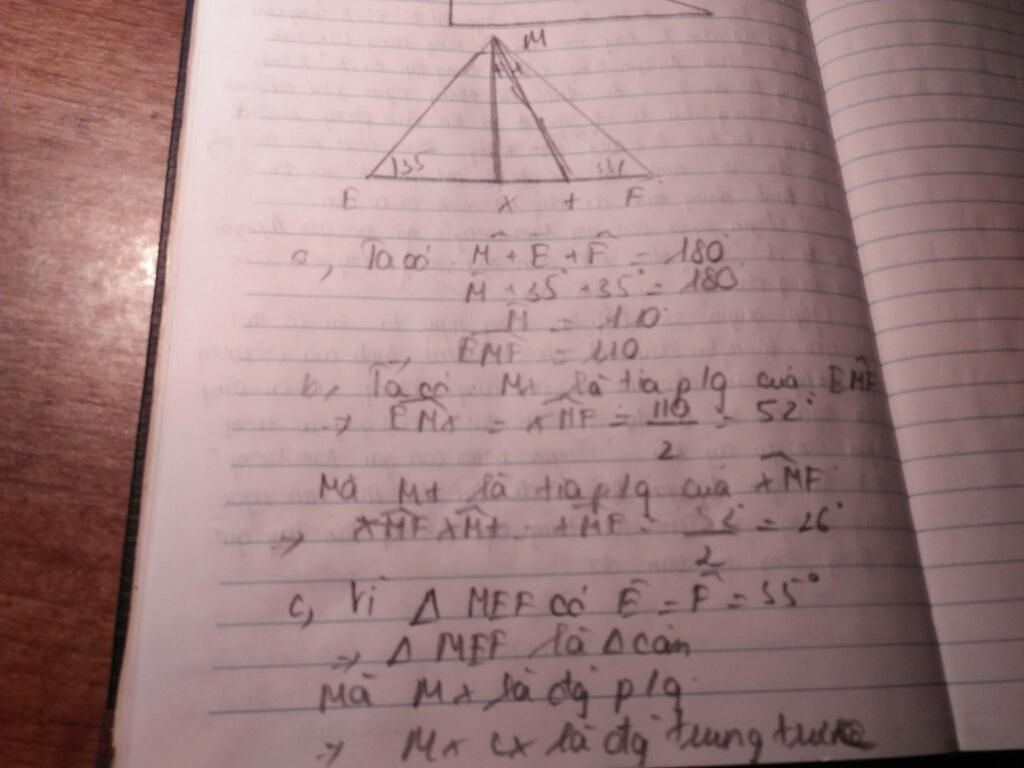 M
35 35
E x t F
a, Ta có M̂ + Ê + F̂ = 180°
M + 35 + 35° = 180
M̂ = 110°
=> EMF = 110
b, Ta có Mx là tia p/g của EMF
=> EMx = xMF = 110/2 = 52°
Mà Mt là tia p/g của xMF
=> xMF xMt tMF = 52/2 = 26°
c, Vì Δ MEF có Ê = F̂ = 35°
=> Δ MEF là Δ cân
Mà Mx là đg p/g
=> Mx cx là đg trung trực